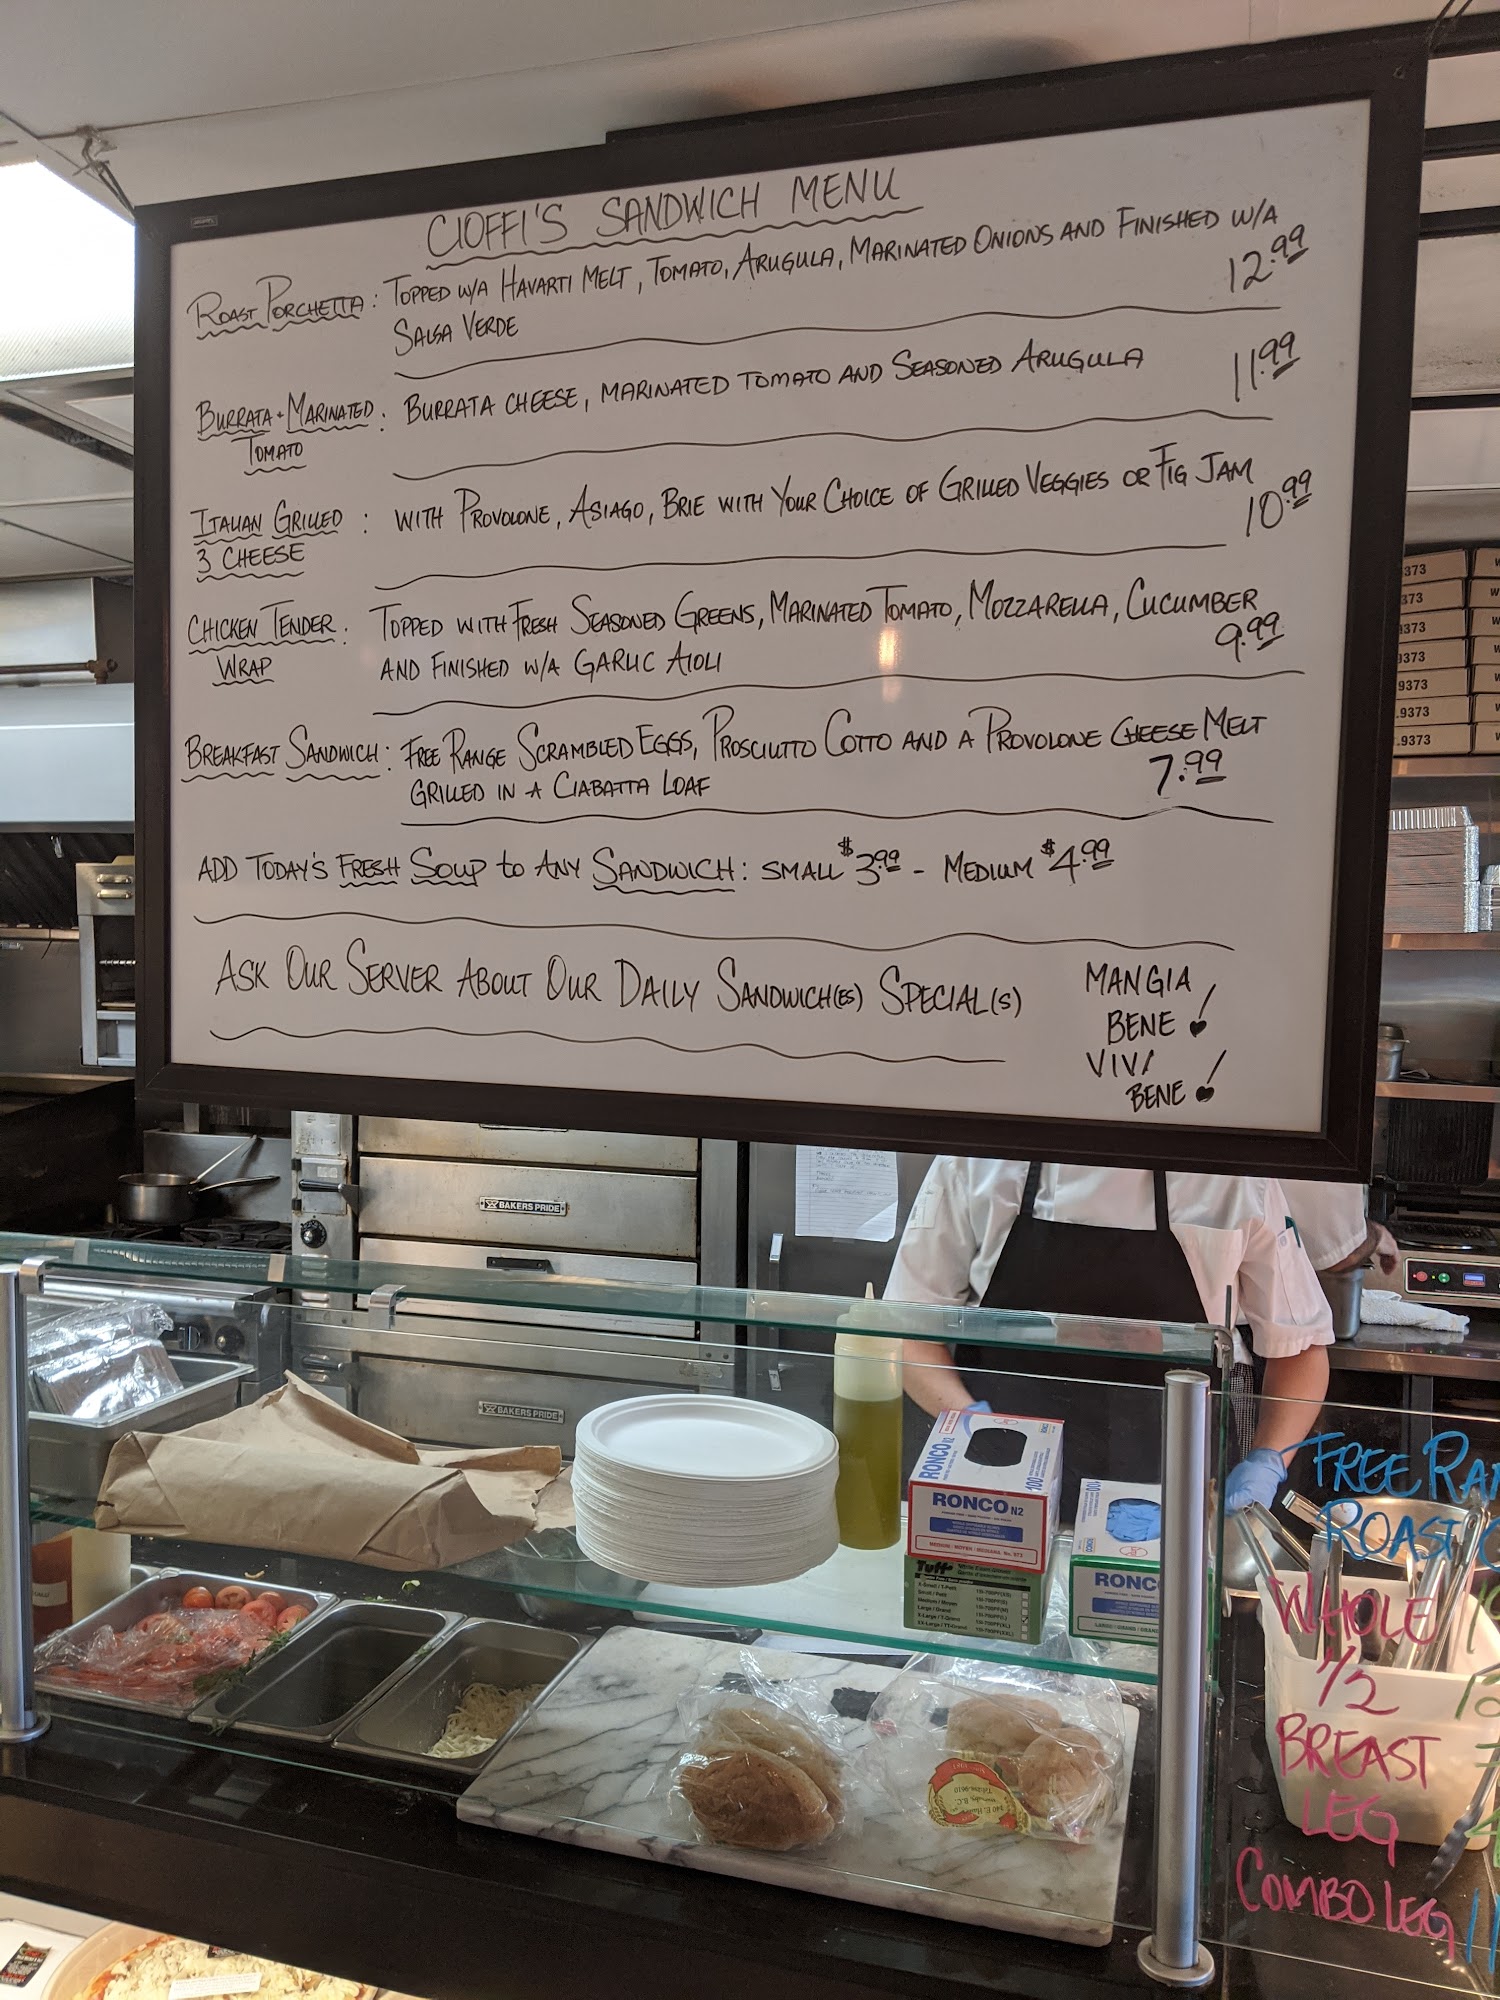 CIOFFI'S SANDWICH MENU
ROAST PORCHETTA: TOPPED W/A HAVARTI MELT, TOMATO, ARUGULA, MARINATED ONIONS AND FINISHED W/A
SALSA VERDE 12.99
BURRATA + MARINATED TOMATO: BURRATA CHEESE, MARINATED TOMATO AND SEASONED ARUGULA 11.99
ITALIAN GRILLED 3 CHEESE: WITH PROVOLONE, ASIAGO, BRIE WITH YOUR CHOICE OF GRILLED VEGGIES OR FIG JAM 10.99
CHICKEN TENDER WRAP: TOPPED WITH FRESH SEASONED GREENS, MARINATED TOMATO, MOZZARELLA, CUCUMBER
AND FINISHED W/A GARLIC AIOLI 9.99
BREAKFAST SANDWICH: FREE RANGE SCRAMBLED EGGS, PROSCIUTTO COTTO AND A PROVOLONE CHEESE MELT
GRILLED IN A CIABATTA LOAF 7.99
ADD TODAY'S FRESH SOUP to ANY SANDWICH: SMALL $3.99 - MEDIUM $4.99
ASK OUR SERVER ABOUT OUR DAILY SANDWICH(ES) SPECIAL(S)
MANGIA
BENE!
VIVI
BENE!
BAKERS PRIDE
BAKERS PRIDE
RONCO N2
100
RONCO N2
Tuff
RONCO
FREE RAN
ROAST C
WHOLE
1/2
BREAST
LEG
COMBO LEG
373
.9373